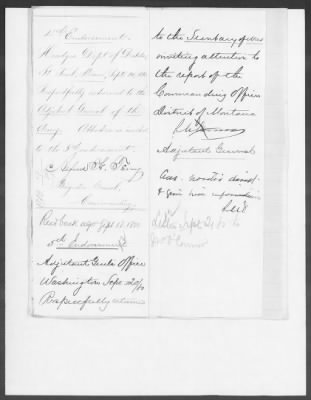 4th Endorsement.
Headqrs Dept of Dakota,
St Paul, Minn, Sept 14, 80
Respectfully returned to the
Adjutant General of the
Army. Attention is invited
to the 3d endorsement.
Alfred H. Terry
Brigadier General,
Commanding.
Recd back ago Sept 17, 1880
5th Endorsement
Adjutant Genls Office
Washington Sept 20/80
Respectfully returned
to the Secretary of War
inviting attention to
the report of the
Commanding Officer
District of Montana
Adjutant General
&
Sept
Connor